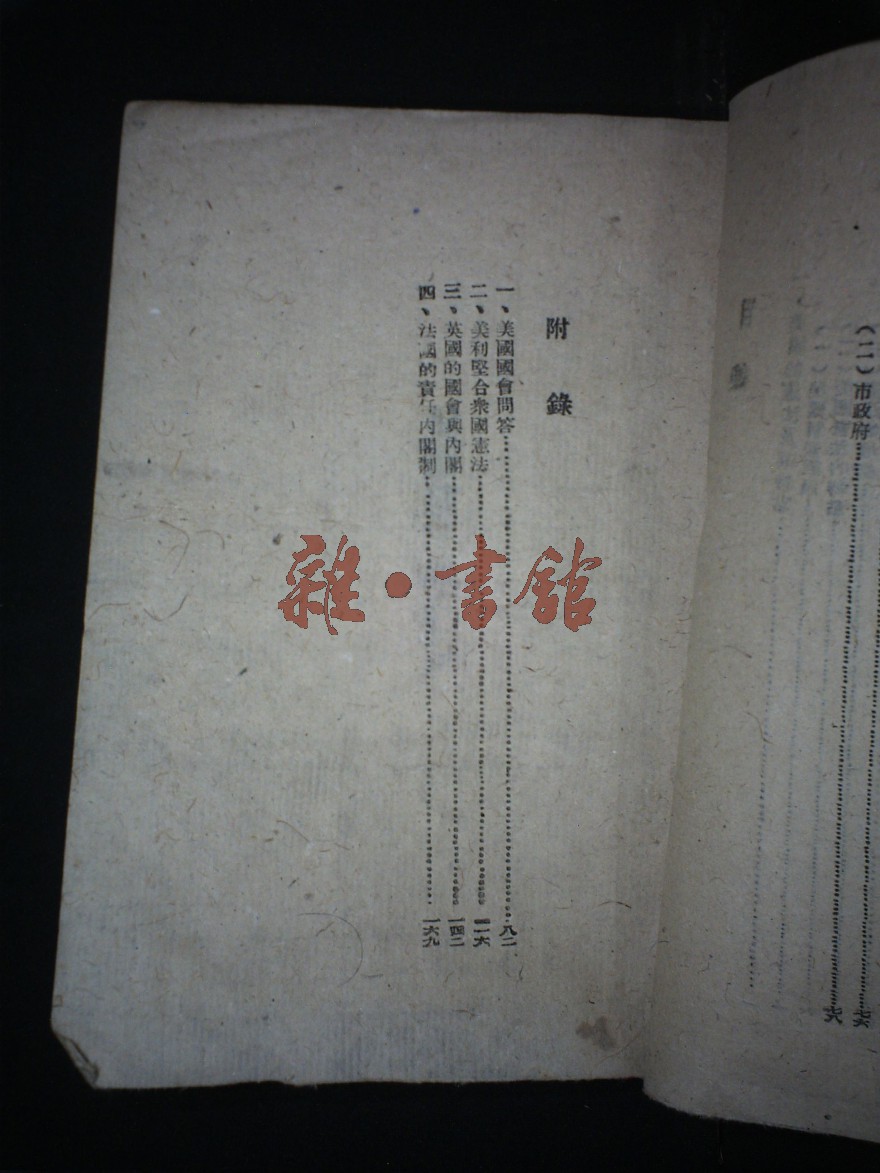 (二)市政府……七六
七八
附錄
一、美國國會問答……八二
二、美利堅合衆國憲法……一二六
三、英國的國會與內閣……一四二
四、法國的責任內閣制……一六九
雜·書館